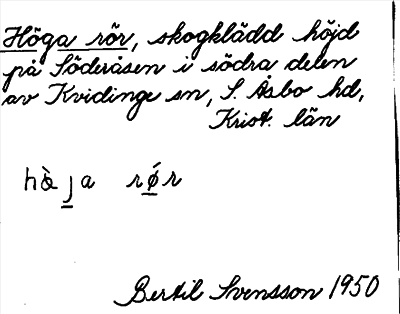 Höga rör, skogklädd höjd
på Söderåsen i södra delen
av Kvidinge sn, S. Åsbo hd,
Krist. län
rǿr
Bertil Svensson 1950